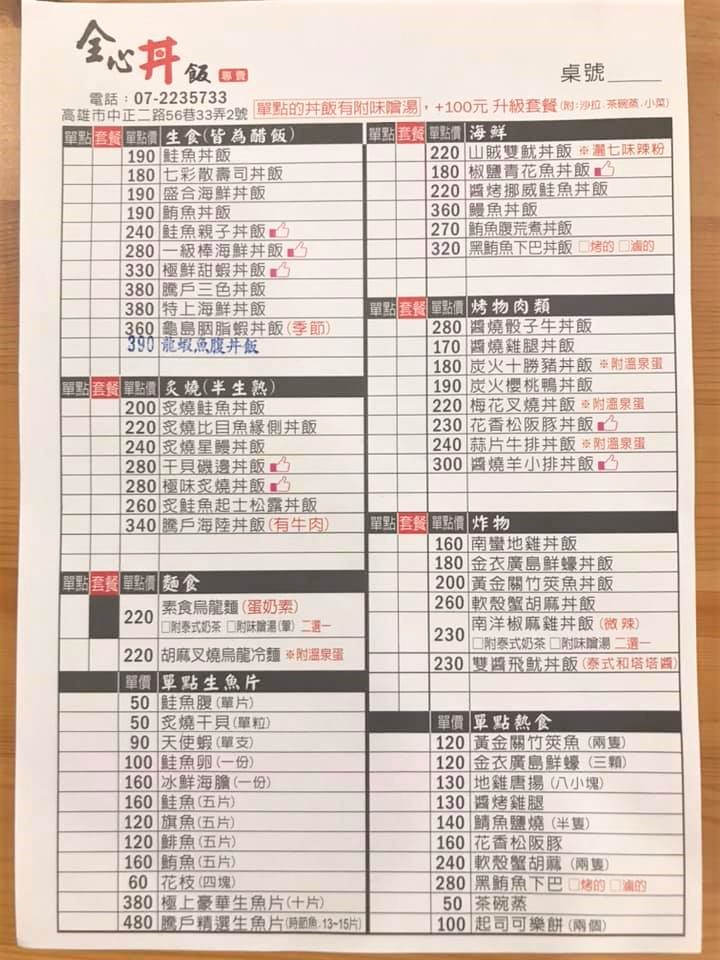 全心丼飯 專賣
桌號
電話：07-2235733
高雄市中正二路56巷33弄2號
單點的丼飯有附味噌湯，+100元 升級套餐(附:沙拉.茶碗蒸.小菜)
單點 套餐 單點價 生食(皆為醋飯)
190 鮭魚丼飯
180 七彩散壽司丼飯
190 盛合海鮮丼飯
190 鮪魚丼飯
240 鮭魚親子丼飯
280 一級棒海鮮丼飯
330 極鮮甜蝦丼飯
380 騰戶三色丼飯
380 特上海鮮丼飯
360 龜島胭脂蝦丼飯(季節)
390 龍蝦魚腹丼飯
單點 套餐 單點價 炙燒(半生熟)
200 炙燒鮭魚丼飯
220 炙燒比目魚緣側丼飯
240 炙燒星鰻丼飯
280 干貝磯邊丼飯
280 極味炙燒丼飯
260 炙鮭魚起士松露丼飯
340 騰戶海陸丼飯(有牛肉)
單點 套餐 單點價 麵食
220 素食烏龍麵(蛋奶素)
□附泰式奶茶 □附味噌湯(葷) 二選一
220 胡麻叉燒烏龍冷麵 ※附溫泉蛋
單價 單點生魚片
50 鮭魚腹(單片)
50 炙燒干貝(單粒)
90 天使蝦(單支)
100 鮭魚卵(一份)
160 冰鮮海膽(一份)
160 鮭魚(五片)
120 旗魚(五片)
120 鯡魚(五片)
160 鮪魚(五片)
60 花枝(四塊)
380 極上豪華生魚片(十片)
480 騰戶精選生魚片(時節魚.13~15片)
單點 套餐 單點價 海鮮
220 山賊雙魷丼飯 ※灑七味辣粉
180 椒鹽青花魚丼飯
220 醬烤挪威鮭魚丼飯
360 鰻魚丼飯
270 鮪魚腹荒煮丼飯
320 黑鮪魚下巴丼飯 □烤的 □滷的
單點 套餐 單點價 烤物肉類
280 醬燒骰子牛丼飯
170 醬燒雞腿丼飯
180 炭火十勝豬丼飯 ※附溫泉蛋
190 炭火櫻桃鴨丼飯
220 梅花叉燒丼飯 ※附溫泉蛋
230 花香松阪豚丼飯
240 蒜片牛排丼飯 ※附溫泉蛋
300 醬燒羊小排丼飯
單點 套餐 單點價 炸物
160 南蠻地雞丼飯
180 金衣廣島鮮蠔丼飯
200 黃金關竹筴魚丼飯
260 軟殼蟹胡麻丼飯
230 南洋椒麻雞丼飯(微辣)
□附泰式奶茶 □附味噌湯 二選一
230 雙醬飛魷丼飯(泰式和塔塔醬)
單價 單點熱食
120 黃金關竹筴魚 (兩隻)
120 金衣廣島鮮蠔 (三顆)
130 地雞唐揚 (八小塊)
130 醬烤雞腿
140 鯖魚鹽燒 (半隻)
160 花香松阪豚
240 軟殼蟹胡麻 (兩隻)
280 黑鮪魚下巴 □烤的 □滷的
50 茶碗蒸
100 起司可樂餅 (兩個)